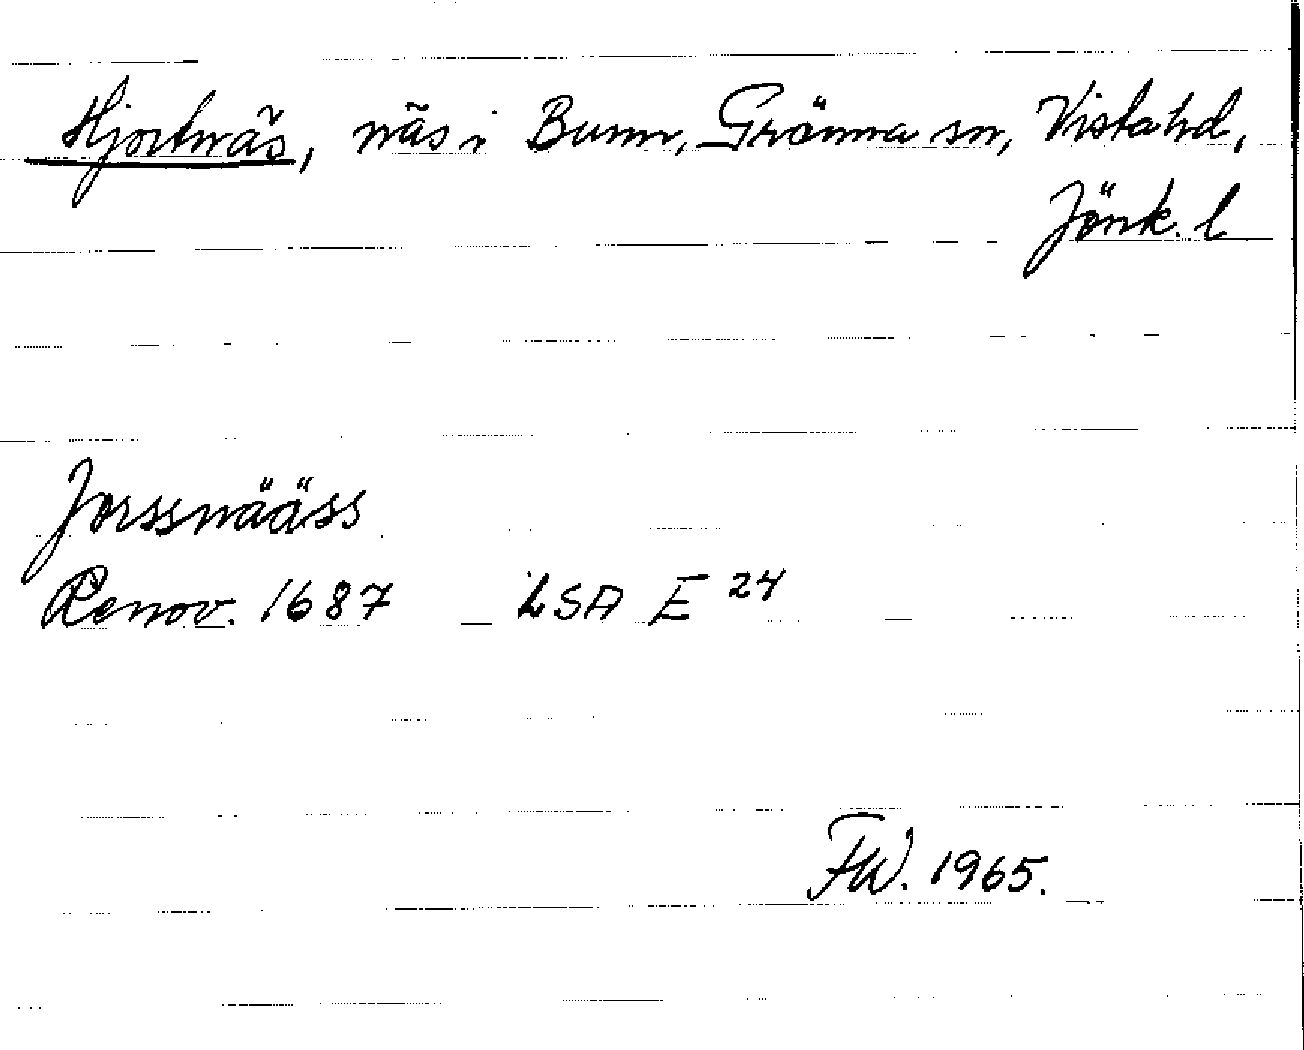 Hjortnäs, näs i Bunn, Gränna sn, Vista hd,
Jönk. l
Jorssnääss
Renov. 1687 LSA E 24
FW. 1965.